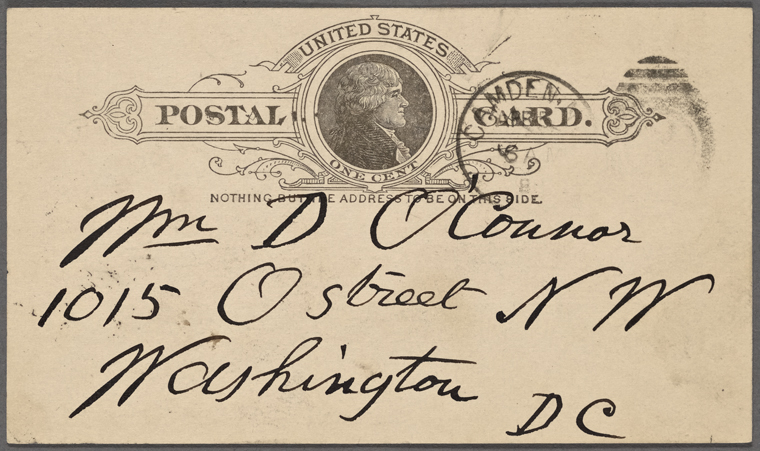 UNITED STATES
POSTAL CARD.
ONE CENT
NOTHING BUT THE ADDRESS TO BE ON THIS SIDE.
CAMDEN
Wm D O'Connor
1015 O street N W
Washington
D C